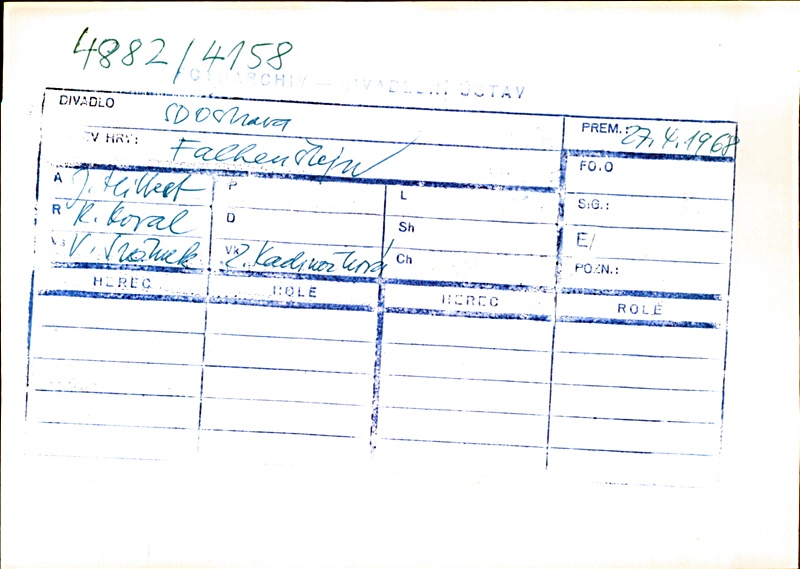 4882/4158
FOTOARCHIV — DIVADELNÍ ÚSTAV
DIVADLO SD Ostrava
PREM.: 27.4.1968
EV HRY: Falkenštejn
FOTO
A J. Hilbert P L
SIG.:
R R. Koval D Sh
E/
Vs V. Šrámek Vk Z. Kadnožková Ch
POZN.:
HEREC ROLE HEREC ROLE